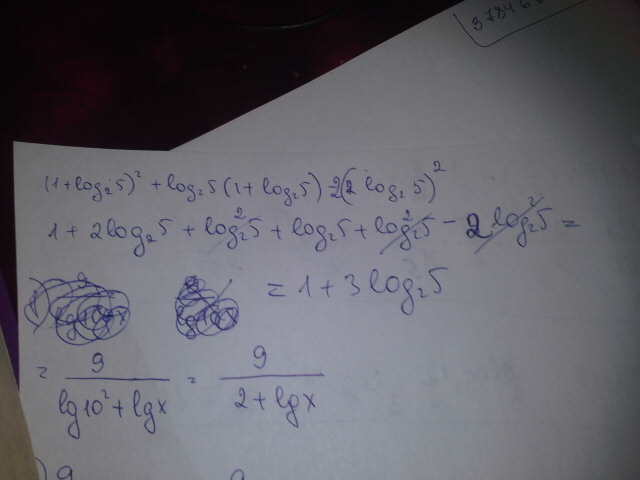 (1+log₂5)² + log₂5(1+log₂5) - 2(2 log₂5)²
1 + 2log₂5 + log₂²5 + log₂5 + log₂²5 - 2 log₂²5 =
= 1 + 3 log₂5
= 9/(lg10² + lgx) = 9/(2 + lgx)